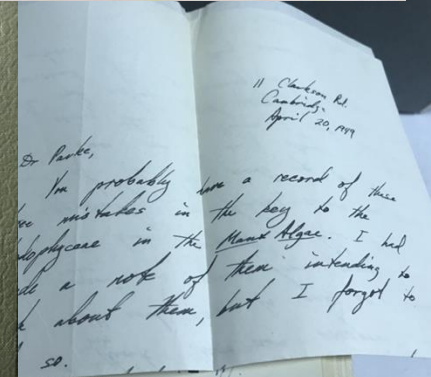 11 Clarkson Rd.
Cambridge
April 20, 1949
Dr Parke,
You probably have a record of these
mistakes in the key to the
dophyceae in the Manx Algae. I had
de a note of them intending to
k about them, but I forgot to
so.